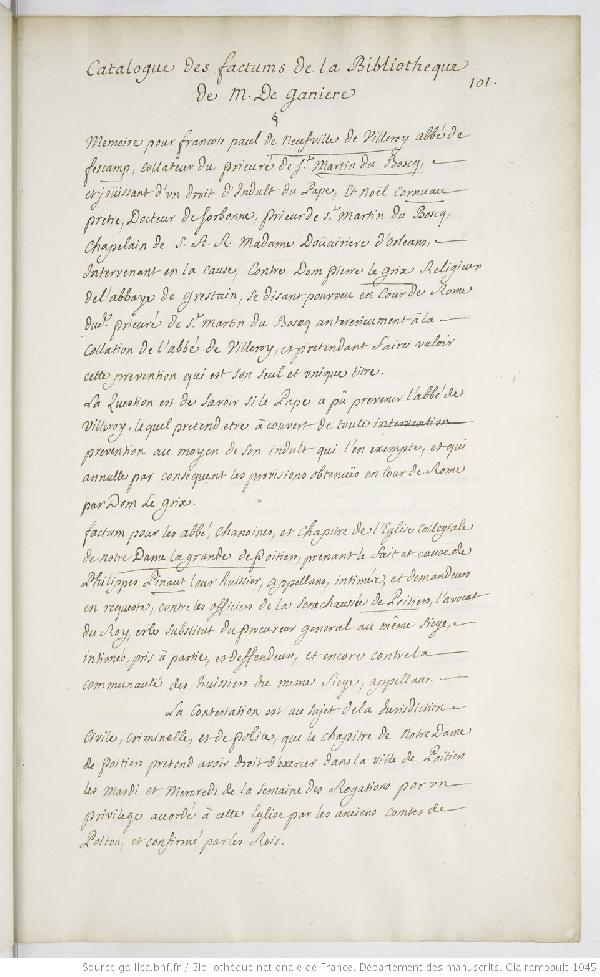 Catalogue des factums de la Bibliotheque
de M. De ganiere
101.
§
Memoire pour francois paul de Neufville de Villeroy abbé de
fescamp, Collateur du Prieuré de S.t Martin du Boscq,
et joüissant d'un droit d'Indult du Pape, Et Noël Cornuau
pretre, Docteur de Sorbonne, prieur de S.t Martin du Boscq,
Chapelain de S. A. R. Madame Doüairiere d'Orleans,
Intervenant en la cause, Contre Dom pierre le grix Religieux
de l'abbaye de grestain, se disant pourveu en Cour de Rome
dud.t prieuré de S.t Martin du Boscq anterieurement à la
Collation de l'abbé de Villeroy, et pretendant faire valoir
cette prevention qui est son seul et unique titre.
La Question est de savoir si le Pape a pû prevenir l'abbé de
Villeroy, lequel pretend etre à couvert de toute intervention
prevention au moyen de son indult qui l'en exempte, et qui
annulle par consequent les provisions obtenuës en Cour de Rome
par Dom Le grix.
factum pour les abbé, Chanoines, et Chapitre de l'Eglise Collegiale
de notre Dame la grande de Poitiers, prenant le fait et cause de
Philippes Pinaut leur huissier, appellans, intimés, et demandeurs
en requete, contre les officiers de la Senechaussée de Poitiers, l'avocat
du Roy, et le Substitut du procureur general au même Siege,
intimés, pris à partie, et deffendeurs, et encore contre la
communauté des huissiers du meme Siege, appellans.
La Contestation est au sujet de la Jurisdiction
Civile, Criminelle, et de police, que le chapitre de Notre Dame
de Poitiers pretend avoir droit d'exercer dans la ville de Poitiers
les Mardi et Mercredi de la Semaine des Rogations par un
privilege accordé à cette Eglise par les anciens Comtes de
Poitou, et confirmé par les Rois.
Source gallica.bnf.fr / Bibliothèque nationale de France. Département des manuscrits. Clairembault 1045